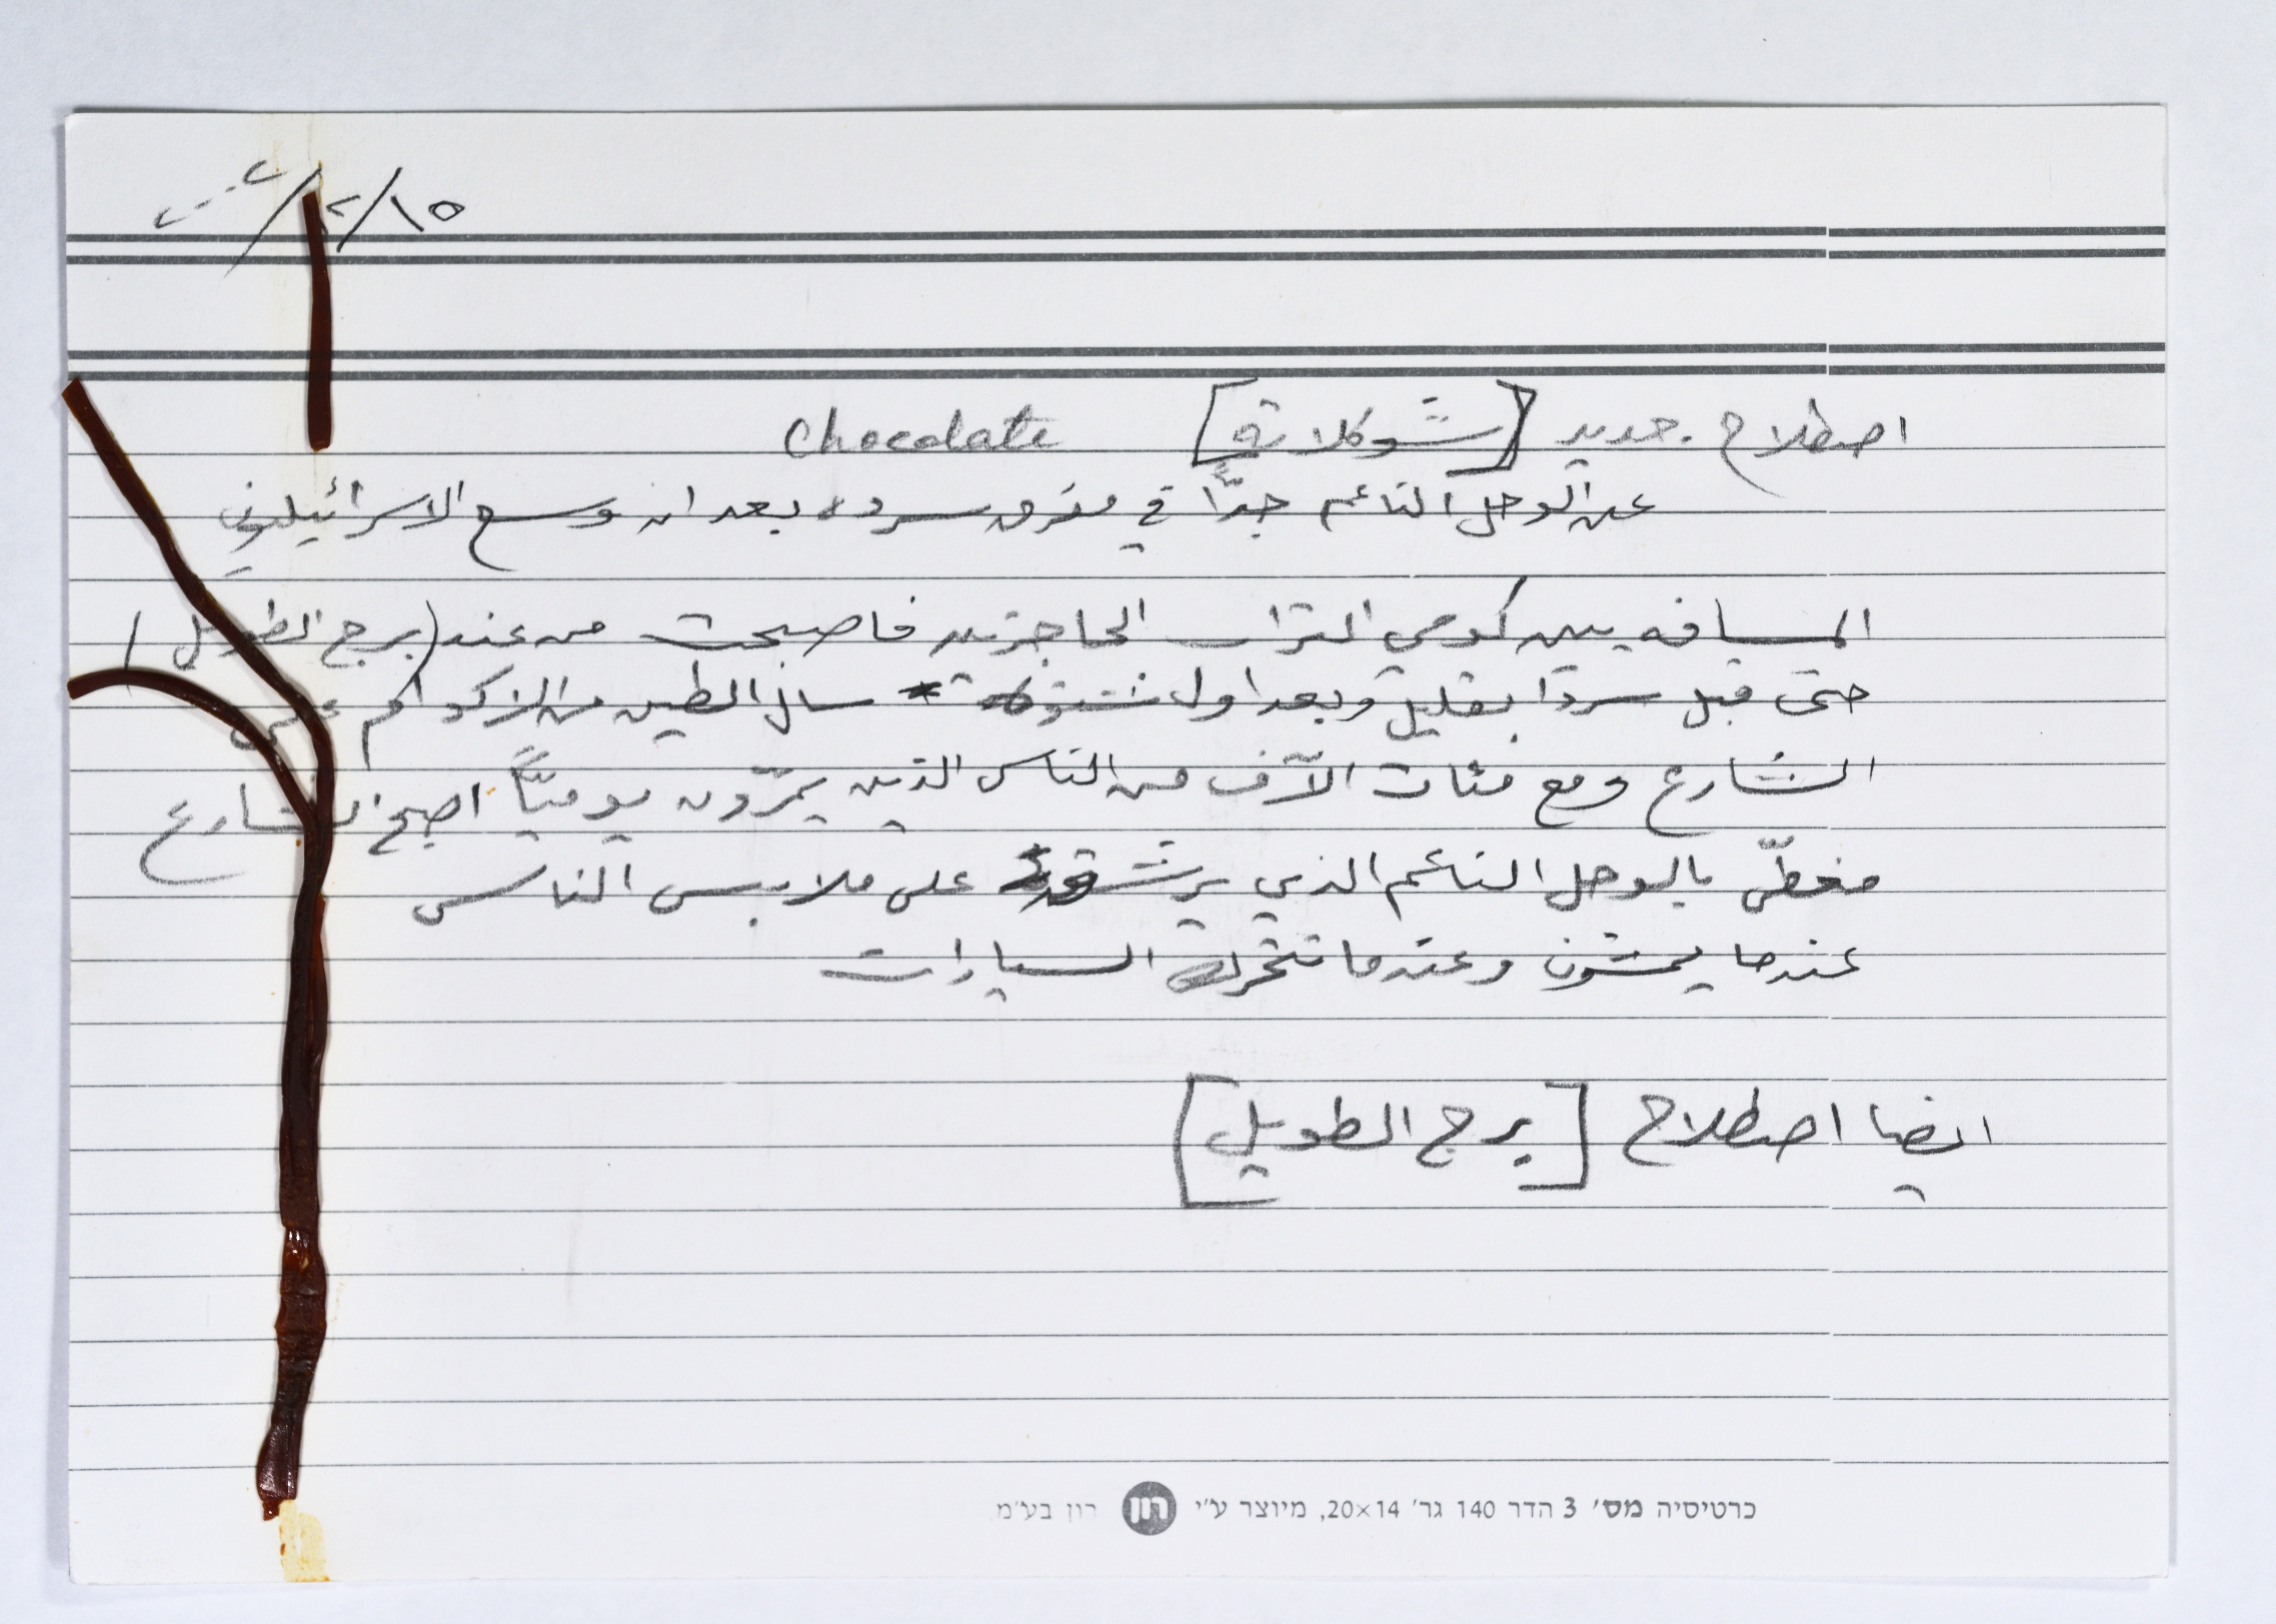 ١٥/٢/٢٠٠٢
اصطلاح جديد [شوكلاتة] Chocolate
عن الوحل الناعم جدًّا في مفرق سرده بعد ان وسع الاسرائيليون
المسافه بين كومي التراب الحاجزين فاصبحت من عند (برج الطويل)
حتى قبل سردا بقليل وبعد اول شتوة سال الطين من الاكوام على
الشارع ومع مئات الآف من الناس الذين يمرّون يوميًّا اصبح الشارع
مغطّى بالوحل الناعم الذي يرشق على ملابس الناس
عندما يمشون وعندما تتحرك السيارات
ايضا اصطلاح [برج الطويل]
כרטיסיה מס׳ 3 הדר 140 גר׳ 20×14, מיוצר ע״י רון רון בע״מ